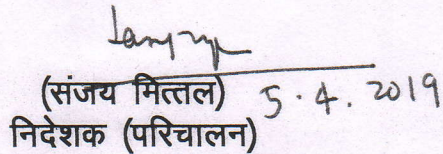 (संजय मित्तल) 5.4.2019
निदेशक (परिचालन)